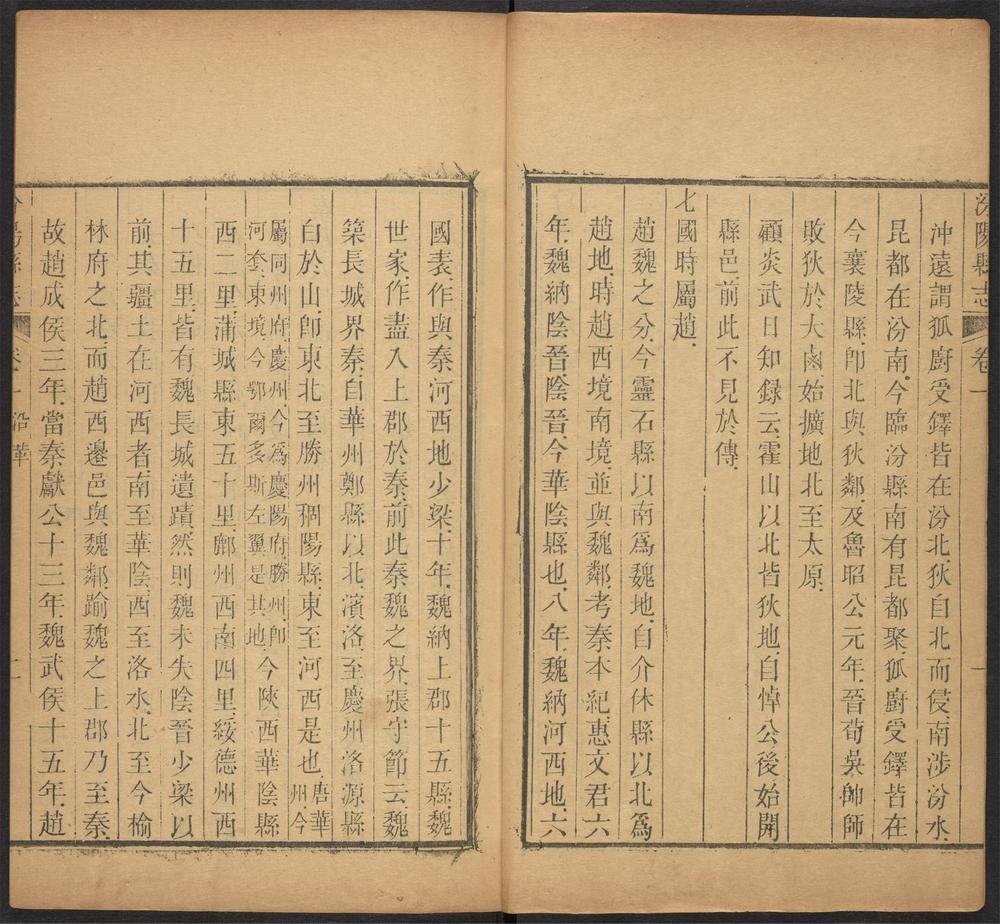 汾陽縣志 卷一
沖遠謂狐廚受鐸皆在汾北狄自北而侵南涉汾水
昆都在汾南今臨汾縣南有昆都聚狐廚受鐸皆在
今襄陵縣卽北與狄鄰及魯昭公元年晉荀吳帥師
敗狄於大鹵始擴地北至太原
顧炎武日知録云霍山以北皆狄地自悼公後始開
縣邑前此不見於傳
七國時屬趙
趙魏之分今靈石縣以南爲魏地自介休縣以北爲
趙地時趙西境南境並與魏鄰考秦本紀惠文君六
年魏納陰晉陰晉今華陰縣也八年魏納河西地六
國表作與秦河西地少梁十年魏納上郡十五縣魏
世家作盡入上郡於秦前此秦魏之界張守節云魏
築長城界秦自華州鄭縣以北濱洛至慶州洛源縣
白於山卽東北至勝州稠陽縣東至河西是也唐華州今
屬同州府慶州今爲慶陽府勝州卽河套東境今鄂爾多斯左翼是其地今陜西華陰縣
西二里蒲城縣東五十里鄜州西南四里綏德州西
十五里皆有魏長城遺蹟然則魏未失陰晉少梁以
前其疆土在河西者南至華陰西至洛水北至今榆
林府之北而趙西邊邑與魏鄰踰魏之上郡乃至秦
故趙成侯三年當秦獻公十三年魏武侯十五年趙
卷一 沿革